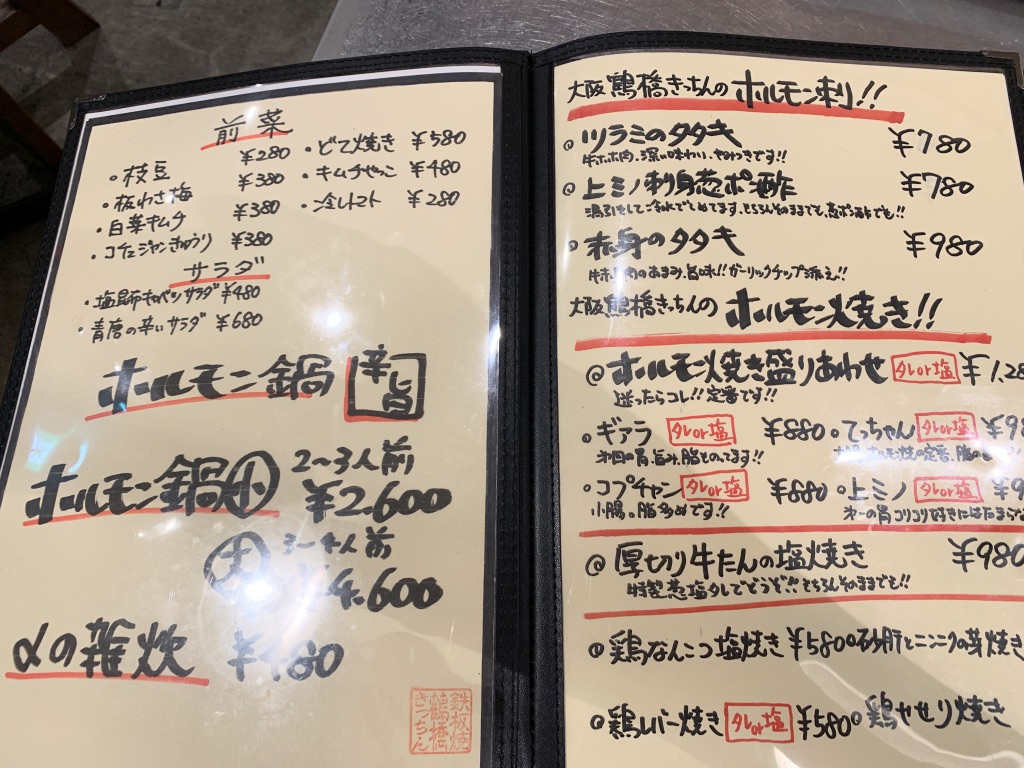 前菜
・枝豆 ¥280
・板わさ梅 ¥380
・白菜キムチ ¥380
・コチュジャンきゅうり ¥380
・どて焼き ¥580
・キムチやっこ ¥480
・冷しトマト ¥280
サラダ
・塩昆布キャベツサラダ ¥480
・青唐の辛いサラダ ¥680
ホルモン鍋 辛旨
ホルモン鍋 小 2〜3人前
¥2.600
大 3〜4人前
¥4.600
〆の雑炊 ¥480
鉄板焼
鶴橋
きっちん
大阪鶴橋きっちんのホルモン刺!!
ツラミのタタキ ¥780
牛ホホ肉、深い味わい、やみつきです!!
上ミノ刺身葱ポン酢 ¥780
湯引きしてご
赤身のタタキ ¥980
肉のあまみ、旨味!!ガーリックチップ添え!!
大阪鶴橋きっちんの ホルモン焼き!!
ホルモン焼き盛りあわせ タレor塩 ¥1,28
迷ったらコレ!!定番です!!
ギアラ タレor塩 ¥880
てっちゃん タレor塩
コプチャン タレor塩 ¥880
小腸。脂多めです!!
上ミノ タレor塩
厚切り牛たんの塩焼き ¥980
特製葱塩タレでどうぞ!!もちろんそのままでも!!
鶏なんこつ塩焼き ¥580
砂肝とニンニクの芽焼き
鶏レバー焼き タレor塩 ¥580
鶏せせり焼き